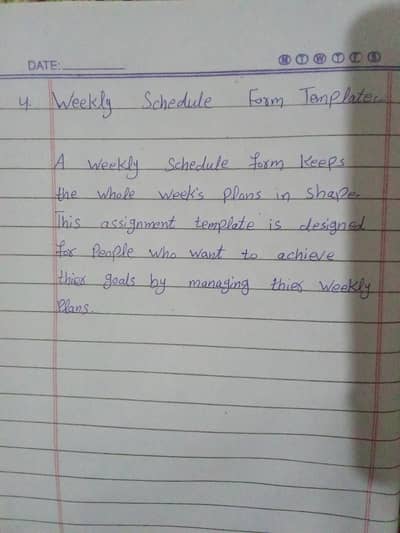 DATE:
M T W T F S
4. Weekly Schedule Form Template:-
A weekly Schedule form keeps
the whole week's plans in shape.
This assignment template is designed
for People who want to achieve
thier goals by managing thier weekly
Plans.